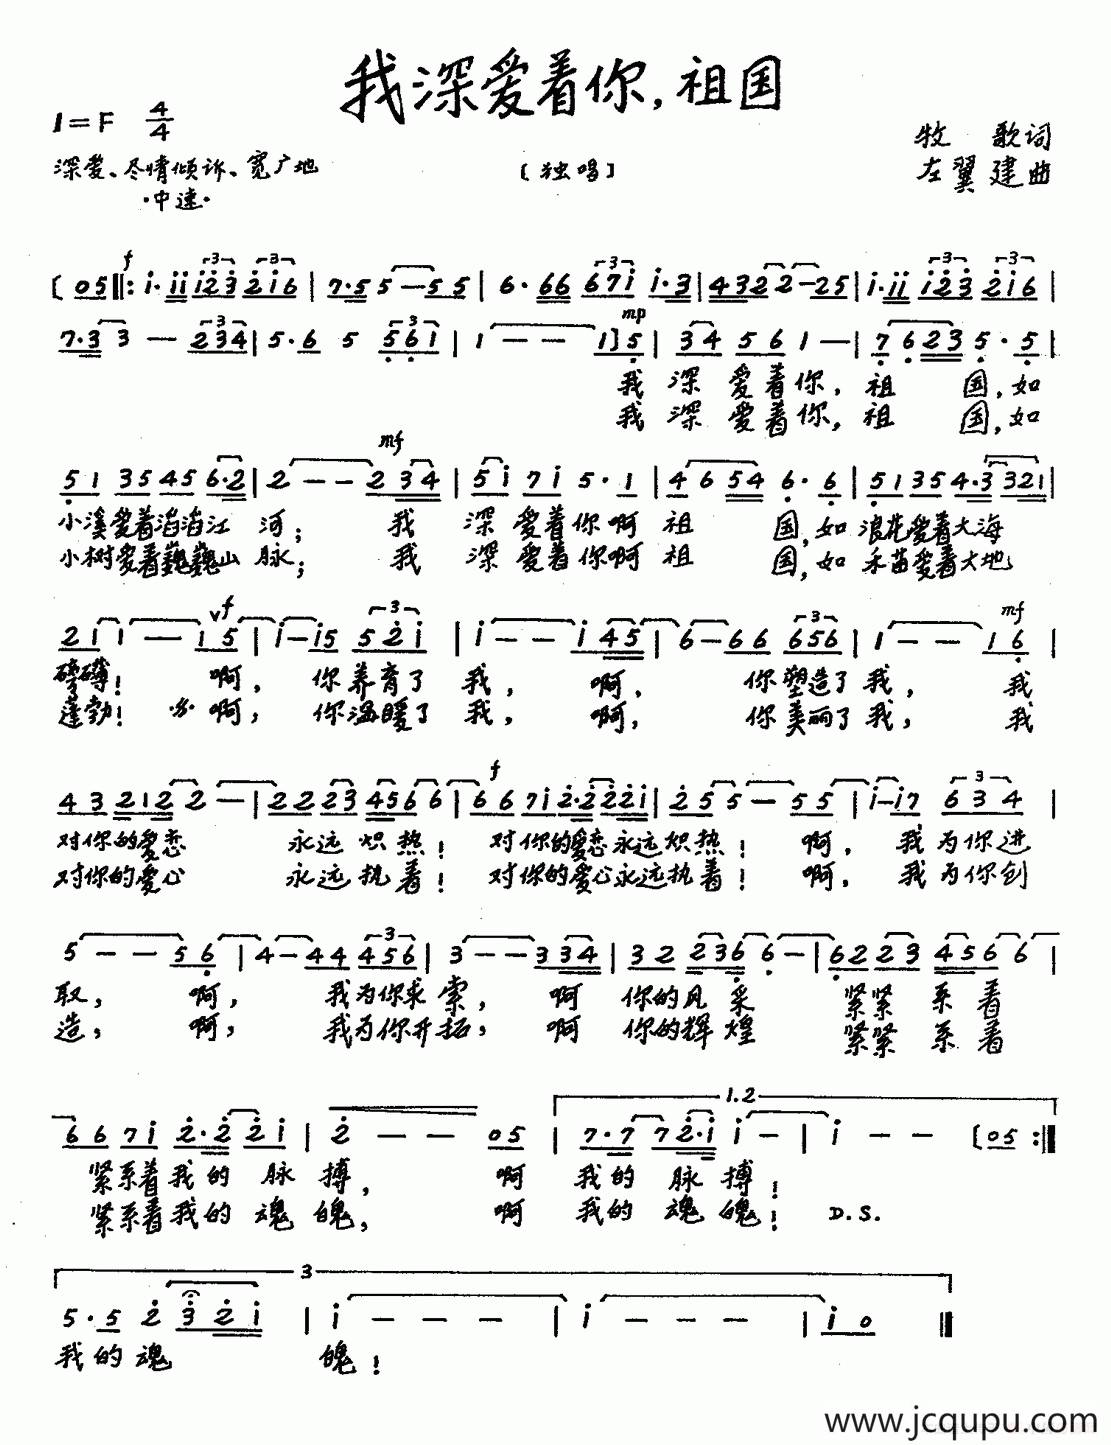 我深爱着你,祖国
1=F 4/4
牧 歌词
深爱、尽情倾诉、宽广地
〔独唱〕
左翼建曲
·中速·
f
〔05‖: i·ii i23 2i6 | 7·55 5—55 | 6·66 67i i·3 | 4322—25 | i·ii i23 2i6 |
7·3 3 — 234 | 5·6 5 561 | 1 — — 1〕5 | 34 56 1— | 7623 5·5 |
mp
我 深 爱着你,祖 国,如
我 深 爱着你,祖 国,如
mf
51 35 45 6·2 | 2 — — 234 | 5i 7i 5·1 | 4654 6·6 | 51354·3321 |
小溪爱着滔滔江 河; 我 深 爱着你啊祖 国,如浪花爱着大海
小树爱着巍巍山 脉; 我 深 爱着你啊祖 国,如禾苗爱着大地
f mf
21 1 — 1 5 | i—i5 52i | i — — i45 | 6—66 656 | 1 — — 16 |
磅礴! 啊, 你养育了 我, 啊, 你塑造了我, 我
蓬勃! 啊, 你温暖了 我, 啊, 你美丽了我, 我
f
43 212 2 — | 22 23 456 6 | 66 7i 2·2 22i | 25 5 — 55 | i—i7 634 |
对你的爱恋 永远炽热! 对你的爱恋永远炽热! 啊, 我为你进
对你的爱心 永远执着! 对你的爱心永远执着! 啊, 我为你创
5 — — 56 | 4—44 456 | 3 — — 334 | 32 236 6 — | 62 23 456 6 |
取, 啊, 我为你求索, 啊 你的风采 紧紧系着
造, 啊, 我为你开拓, 啊 你的辉煌 紧紧系着
1.2
66 7i 2·2 2i | 2 — — 05 | 7·7 72·i i — | i — — 〔05 :‖
紧系着我的脉搏, 啊 我的脉搏!
紧系着我的魂魄, 啊 我的魂魄! D.S.
3
5·5 2 32i | i — — — | i — — — | i0 ‖
我的魂 魄!
www.jcqupu.com